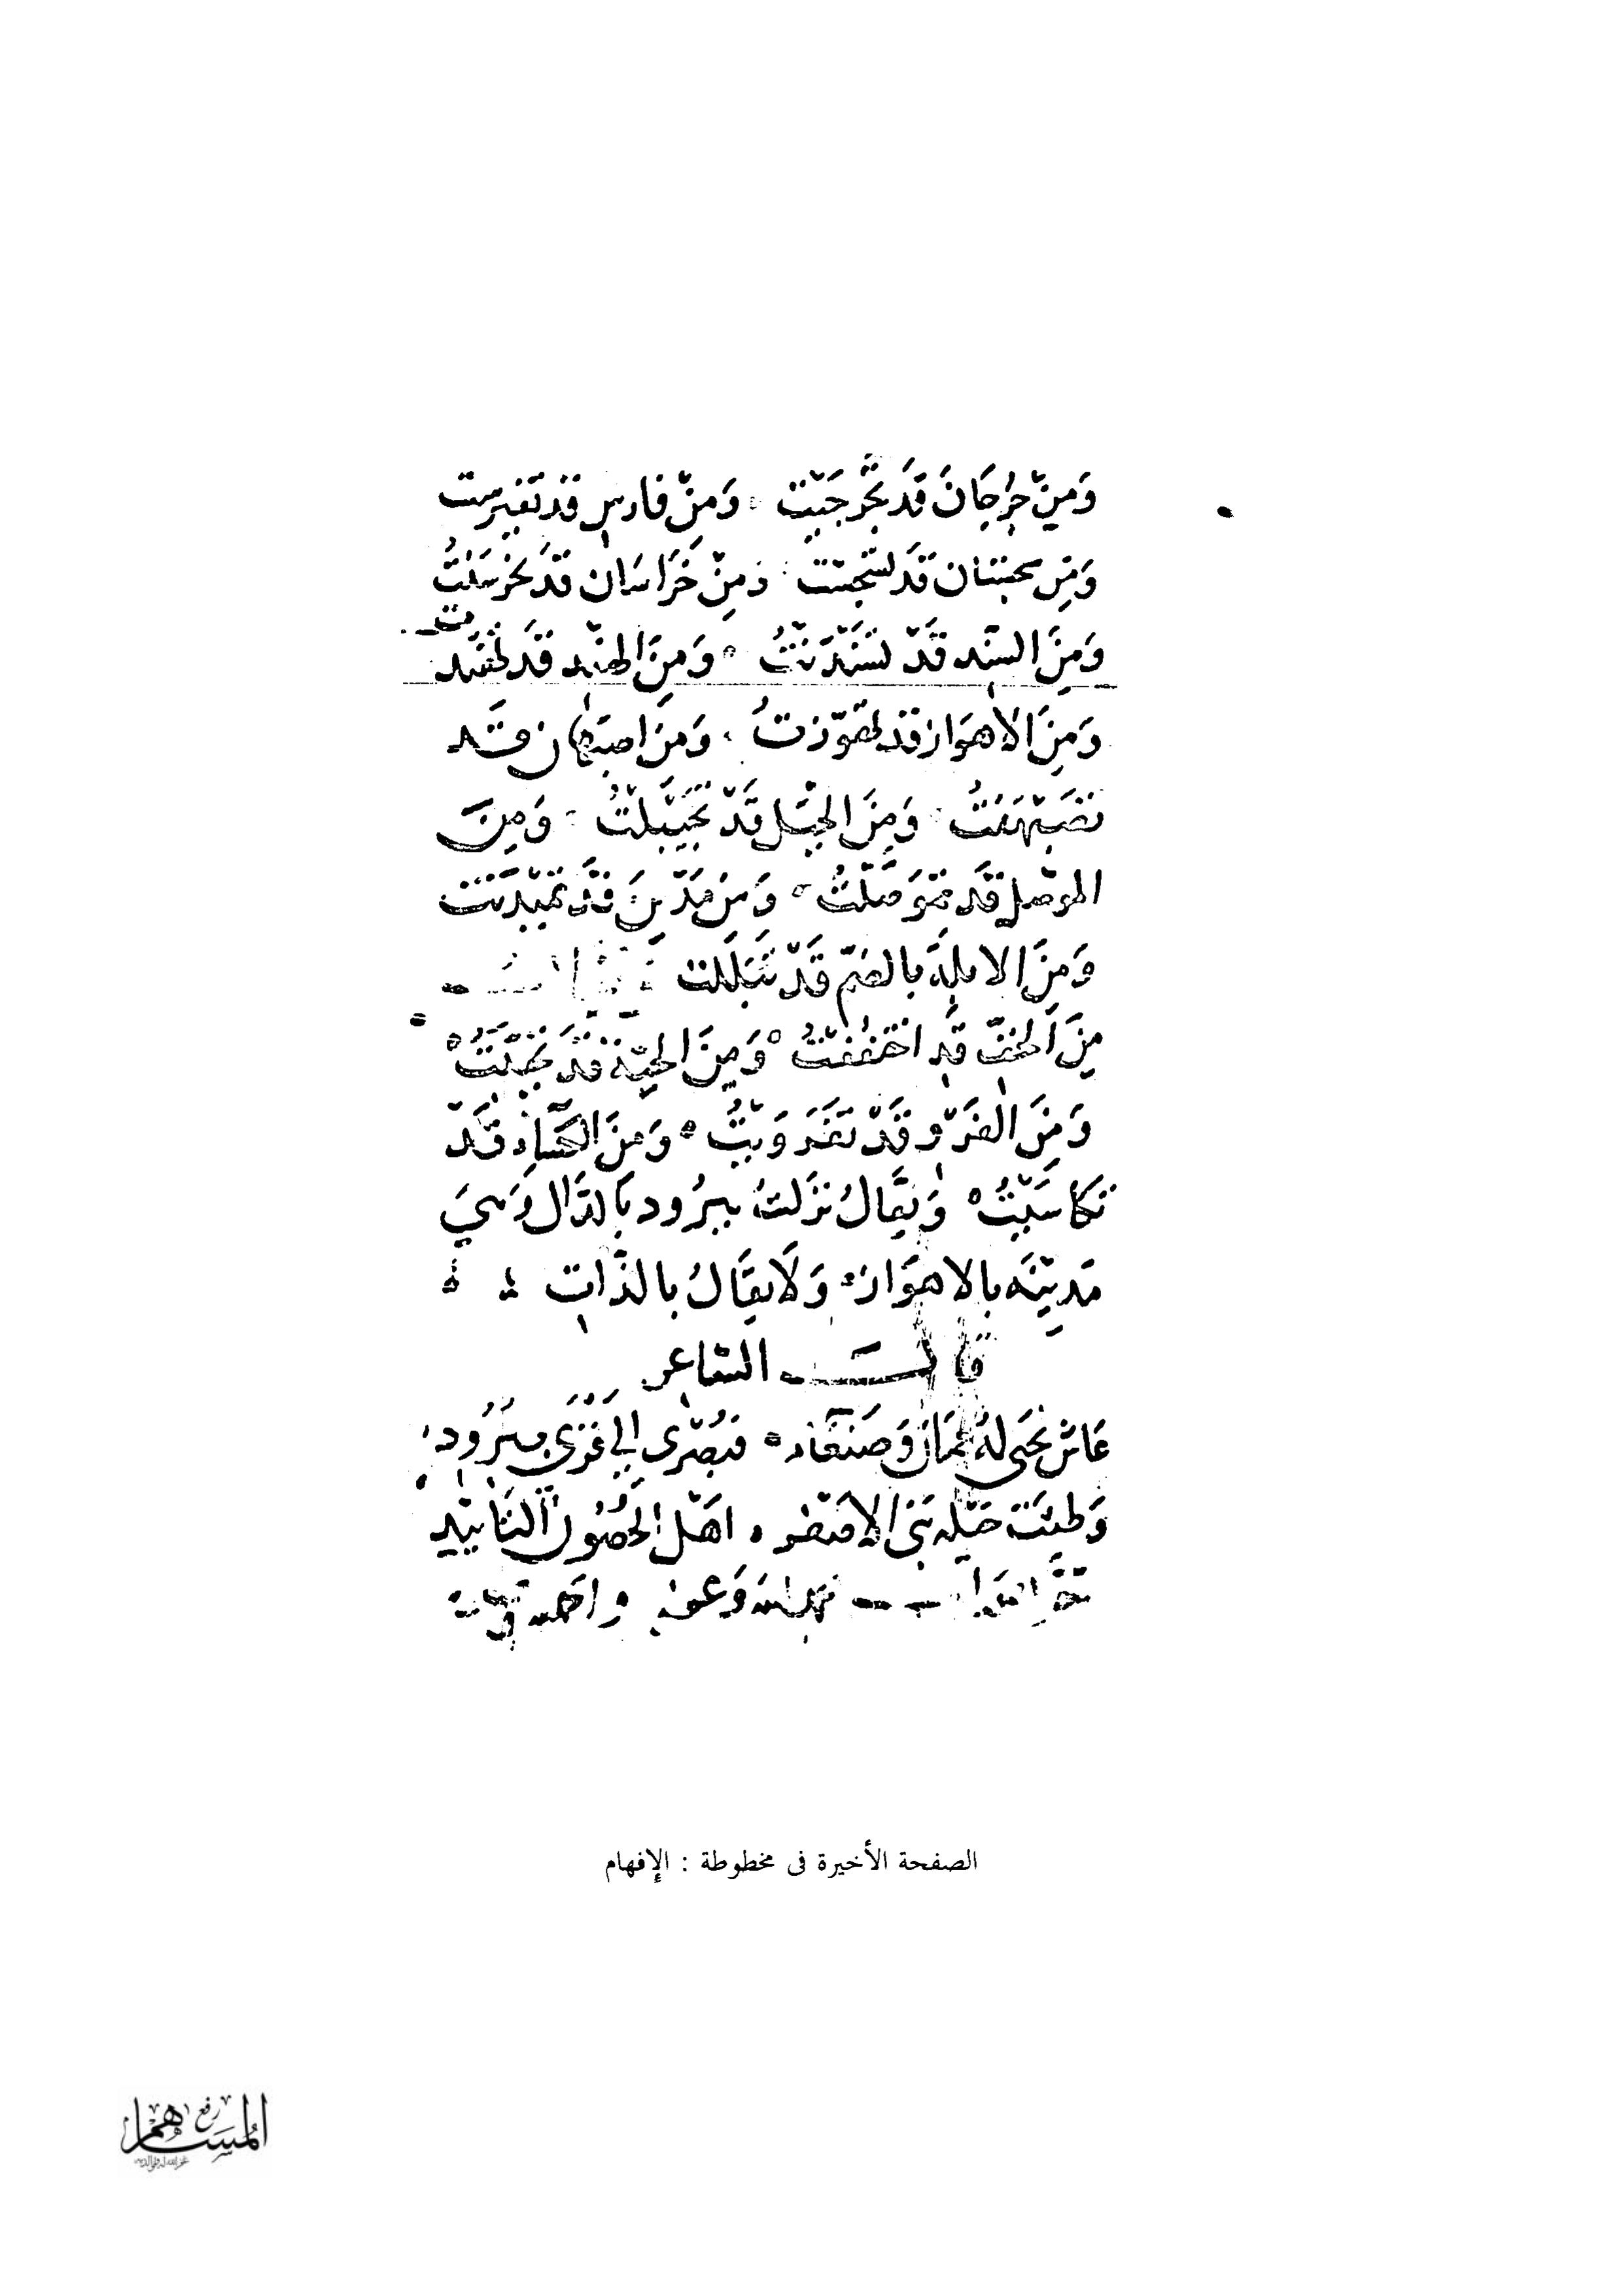 وَمِنْ جُرْجَانَ قَدْ تَجَرْجَنْتُ وَمِنْ فَارس قد تَفَيرست
وَمِن سجستان قَد تسَجستت وَمِنْ خَرَاسَان قَدْ تخرسَنْتُ
وَمِنَ السِّند قَدْ تسَنْدَنْتُ وَمِنَ الهنْد قَد تهَنّدت
وَمِنَ الاهوَاز قد تهَوّزتُ وَمِنَ اصبَهَان قَد
تصَبْهَنتُ وَمِنَ الجبَل قَدْ تجَيْبَلْتُ وَمِنَ
الموصل قَد تموَصَلْتُ وَمِن مَدْيَنَ قَد تميْدَنْت
وَمِنَ الابلة بالضم قَدْ تَبَلّلت
مِنَ الخفّ قد اختَفَفْتُ وَمِنَ الجبّة قَد تجببْتُ
وَمِنَ الفَرْو قَدْ تَفَرَوَيْتُ وَمِنَ الكسَاءِ قَدْ
تكاسَيْتُ وَيُقَالُ نزَلتُ ببيرُود بالدّال وَهيَ
مَدِيْنَه بالاهوَاز وَلَا يقَالُ بالذّات
قالَ الشاعر
عَاش يحَيى لهُ عُمَان وَصَنعَاء فبُصْرى الى غَزى ببيرُود
وَطِئَت خَيله بَنى الاصْفر اهْل الحصُون
وَعونه
الصفحة الأخيرة فى مخطوطة : الإفهام
رفع
المساهم